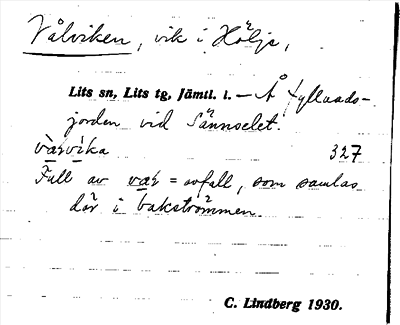 Vålviken, vik i Hölje,
Lits sn, Lits tg, Jämtl. l. — Å
jorden vid Sännselet.
varvika 327
Full av var = avfall, som samlas
där i bakströmmen.
C. Lindberg 1930.